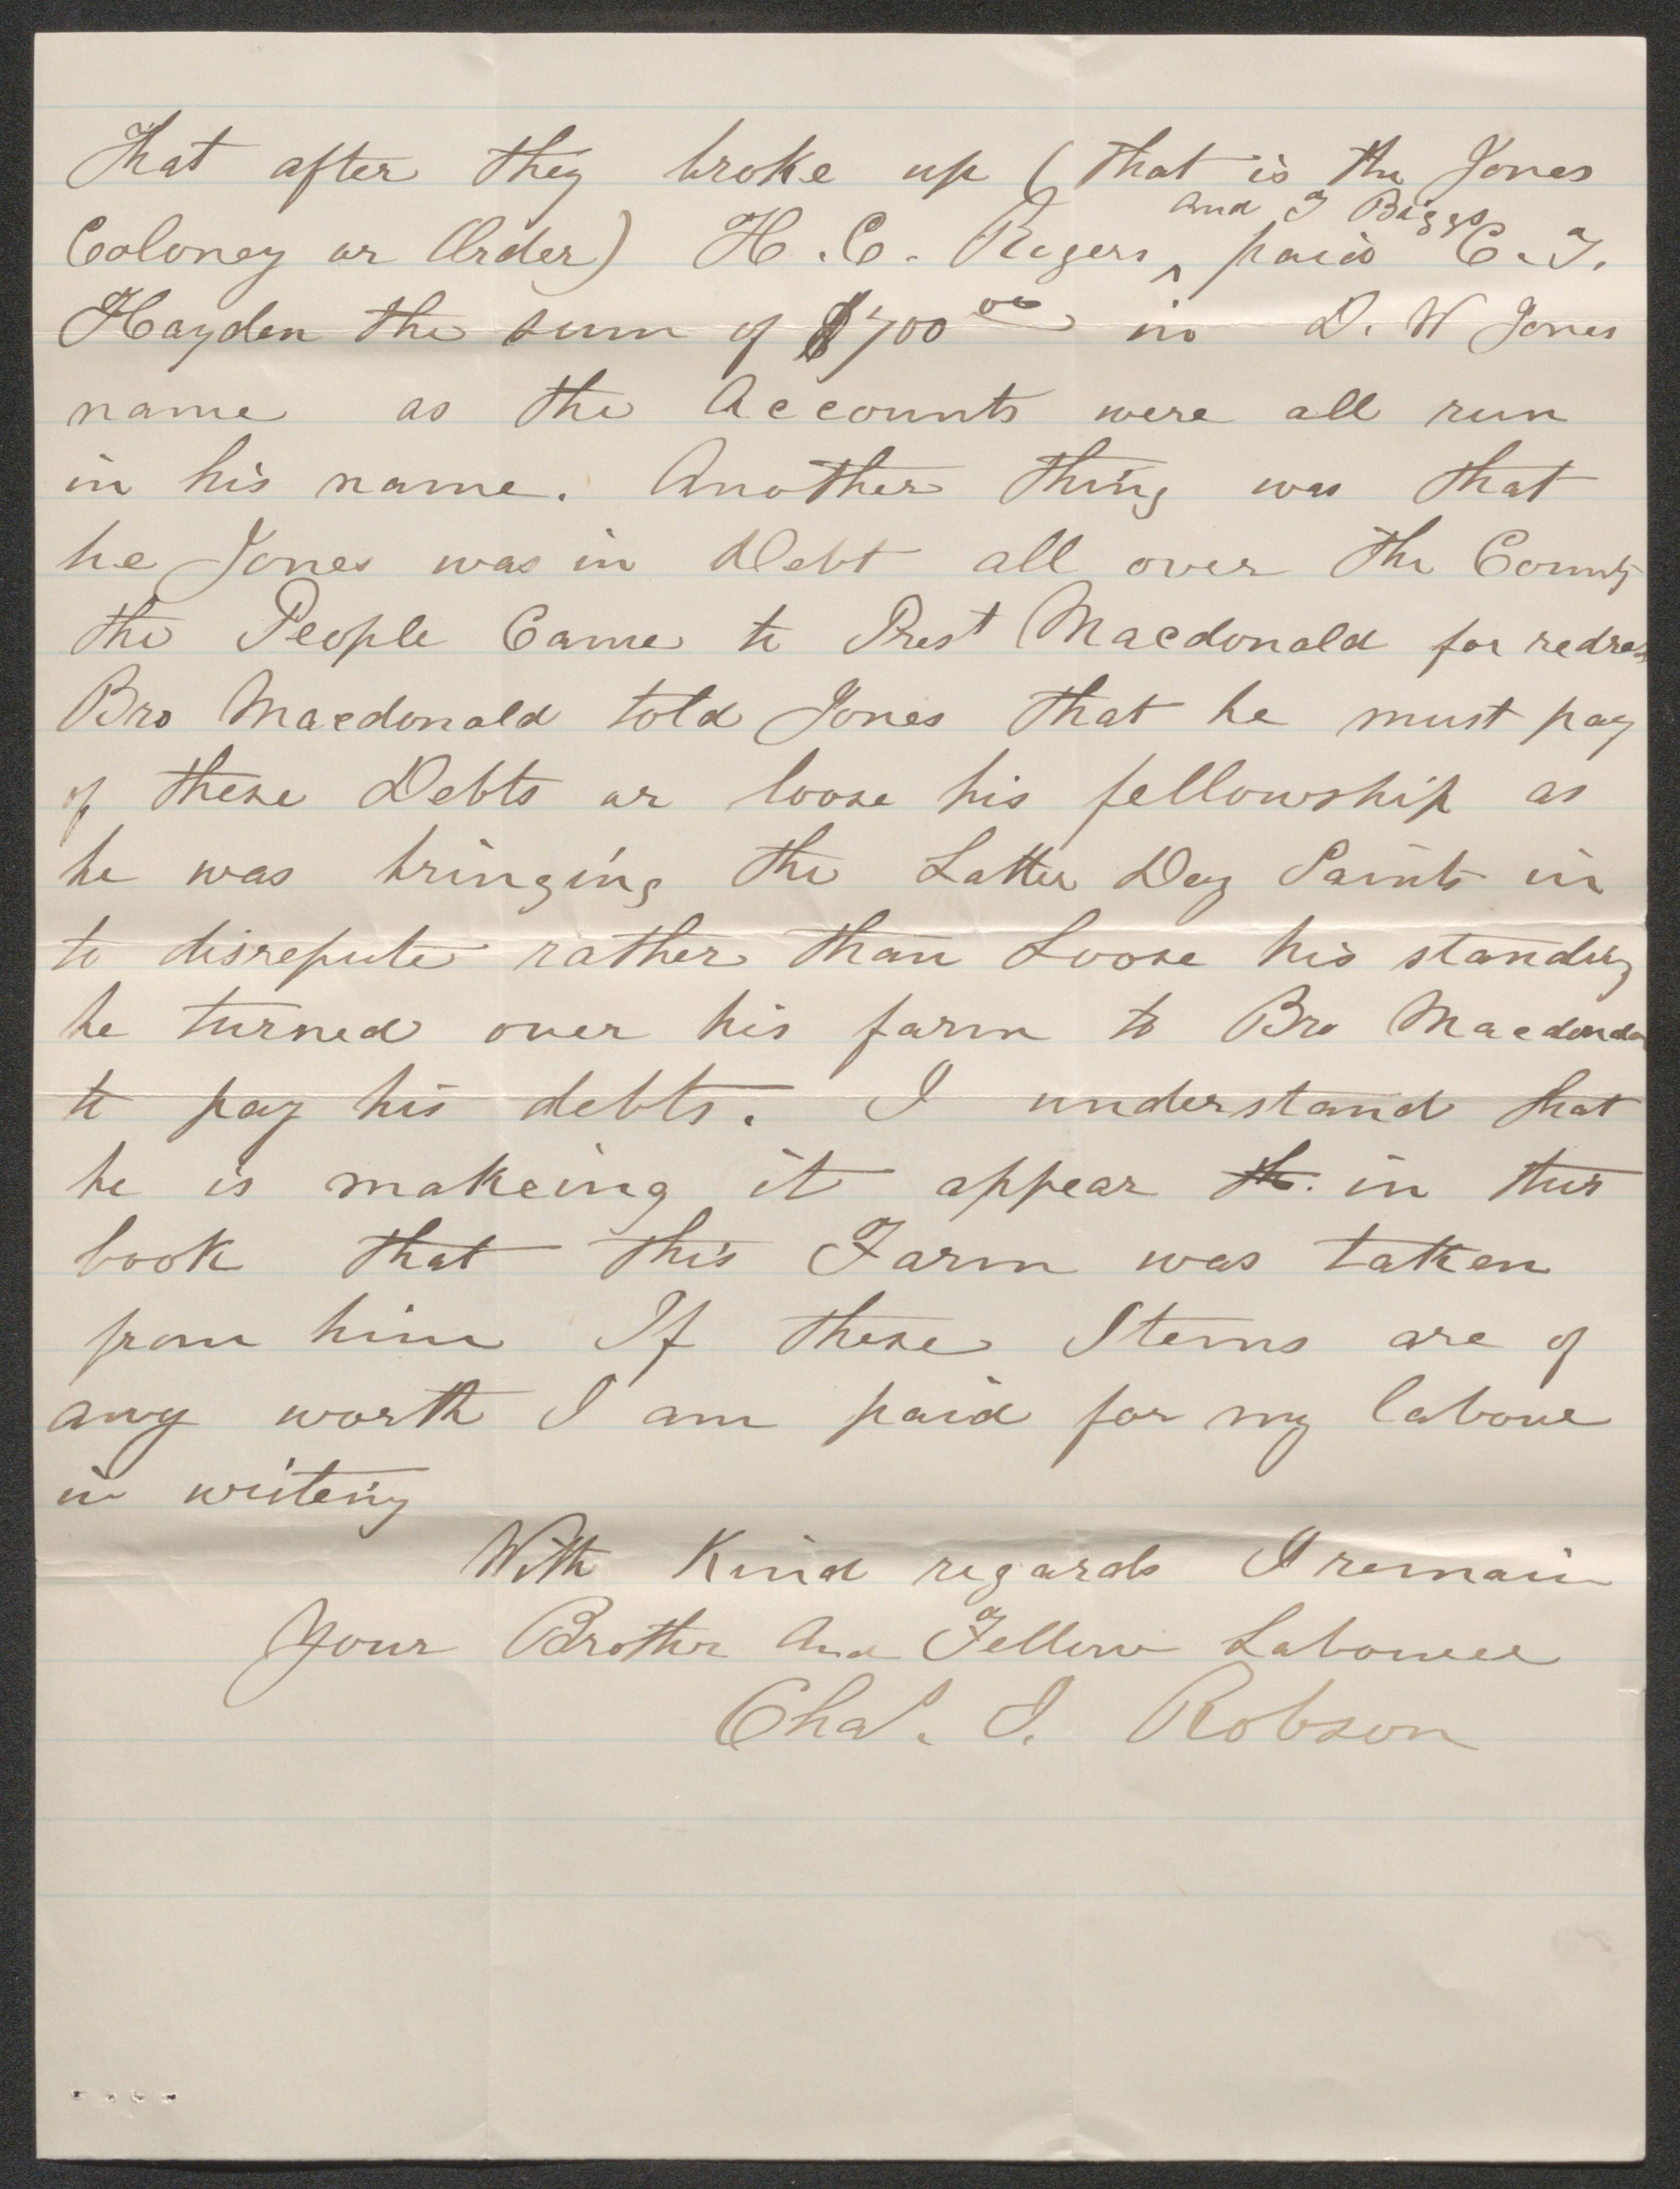 That after they broke up (that is the Jones
and T Biggs
Coloney or Order) H. C. Rogers ^ paid C. T.
Hayden the sum of $700 00 in D. W Jones
name as the Accounts were all run
in his name. Another thing was that
he Jones was in Debt all over the County
the People Came to Prest Macdonald for redress
Bro Macdonald told Jones that he must pay
of these Debts or loose his fellowship as
he was bringing the Latter Day Saints in
to disrepute rather than Loose his standing
he turned over his farm to Bro Macdonald
to pay his debts. I understand that
he is makeing it appear th. in this
book that this Farm was taken
from him If these Items are of
any worth I am paid for my laboue
in writeing
With Kind regards I remain
Your Brother And Fellow Labourer
Chas. I. Robson